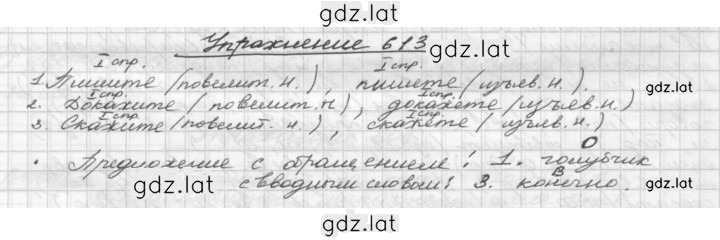 gdz.lat
Упражнение 613
I спр. I спр.
1. Пишите (повелит. н.), пишете (изъяв. н.).
gdz.lat
I спр. I спр.
2. Докажите (повелит. н), докажете (изъяв. н)
I спр. I спр.
3. Скажите (повелит. н.), скажете (изъяв. н.)
О
Предложение с обращением: 1. голубчик
В
с вводным словом: 3. конечно.
gdz.lat
gdz.lat
gdz.lat